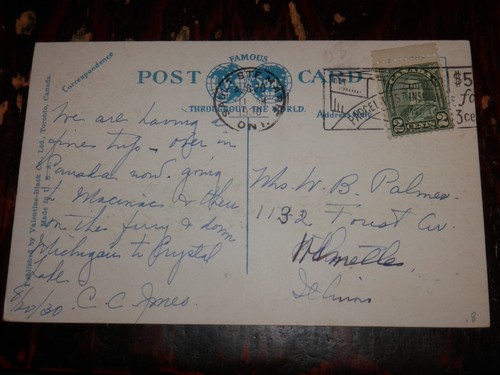 Correspondence
FAMOUS
POST CARD
THROUGHOUT THE WORLD
Address Only
SAULT STE. MARIE
ONT.
PARCEL
$5
for
3 ce
CANADA
2 2
Published by Valentine-Black Co., Ltd., Toronto, Canada.
Made in U.S.A.
We are having a
fine trip - over in
Canada now. going
to Macinac & then
on the ferry & down
Michigan to Crystal
Lake
8/20/30. C. C. Jones.
Mrs. W. B. Palmer
1132 Forest Av.
Wilmette,
Illinois
.8